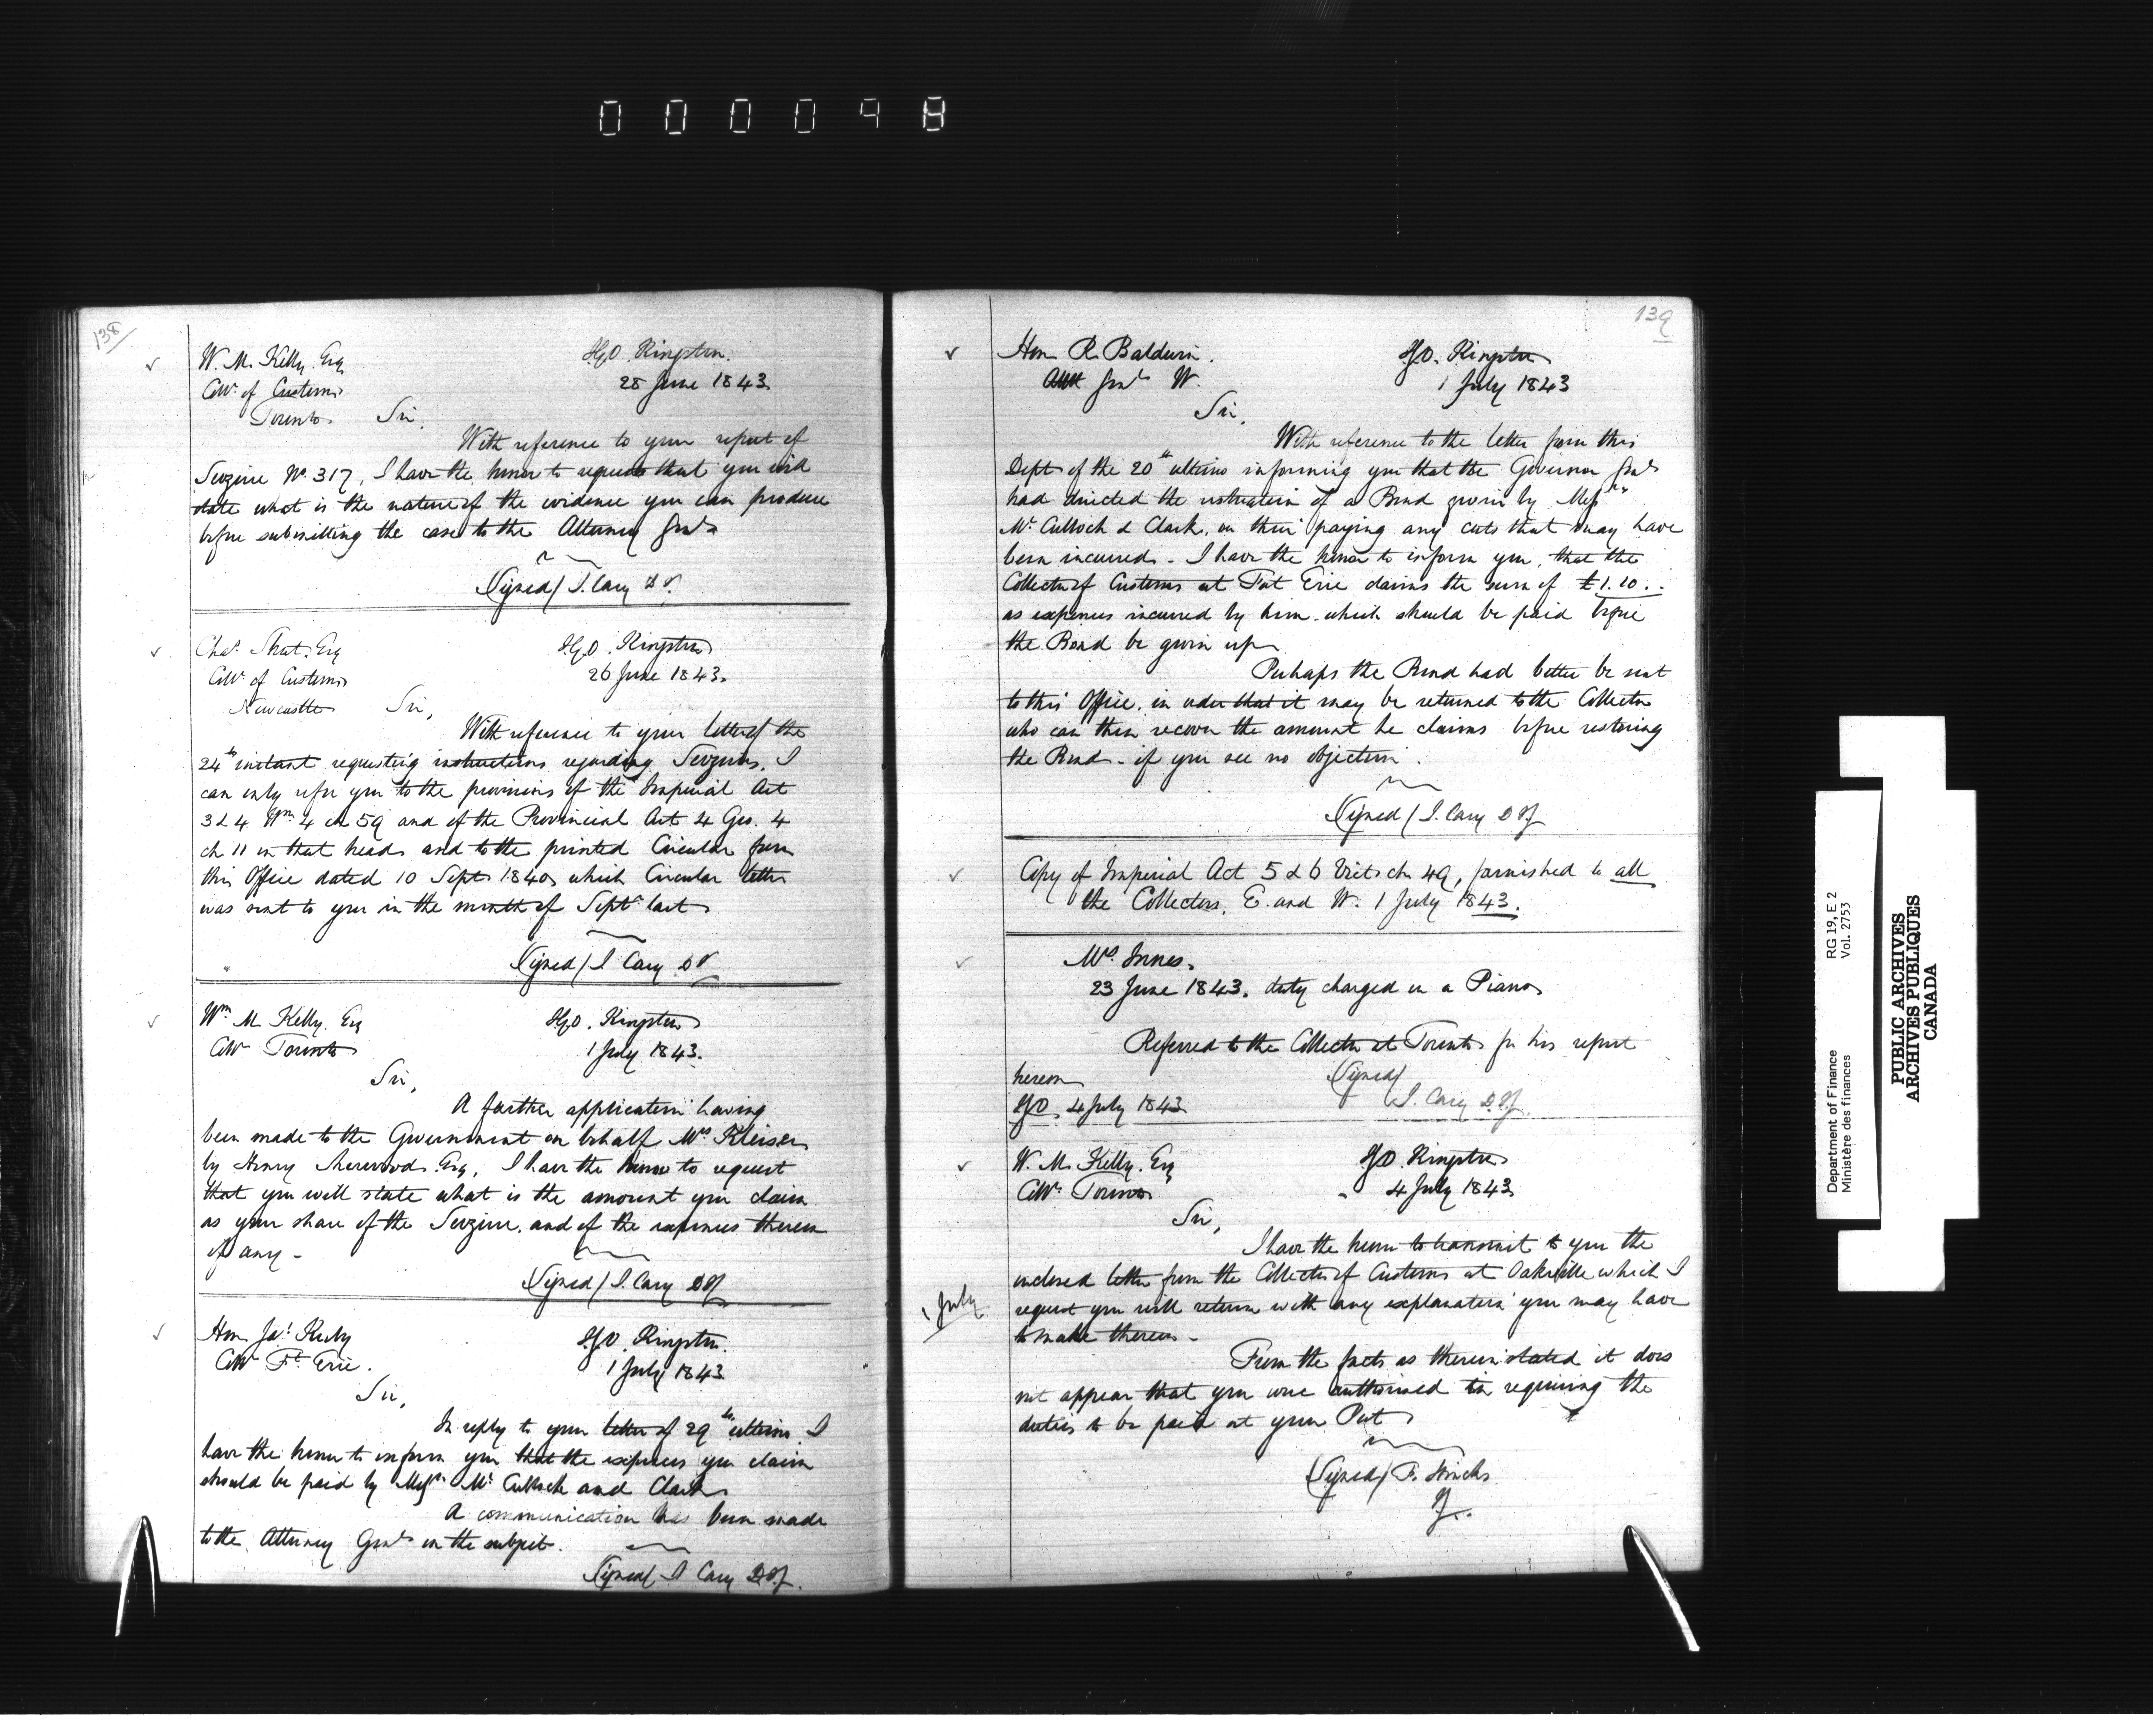 000098
138
W. M. Kelly Esq
Collr of Customs
Toronto
I.G.O. Kingston.
28 June 1843.
Sir,
With reference to your report of
Seizure No. 317, I have the honor to request that you will
state what is the nature of the evidence you can produce
before submitting the case to the Attorney Genl
(Signed) J. Cary D I.
Chas. Short Esq
Collr of Customs
Newcastle
I.G.O. Kingston
26 June 1843.
Sir,
With reference to your letter of the
24th instant requesting instructions regarding Seizures, I
can only refer you to the provisions of the Imperial Act
3 & 4 Wm 4 ch 59 and of the Provincial Act 4 Geo. 4
ch 11 on that head and to the printed Circular from
this Office dated 10 Sept 1840, which Circular letter
was sent to you in the month of Septr last
(Signed) J. Cary D I
Wm M Kelly. Esq
Collr Toronto
I.G.O. Kingston
1 July 1843.
Sir,
A further application having
been made to the Government on behalf Mrs Kleiser
by Henry Sherwood Esq, I have the honor to request
that you will state what is the amount you claim
as your share of the Seizure, and of the expenses thereon
if any -
(Signed) J. Cary D I G
Hon Jas. Kerby
Collr Ft Erie.
I.G.O. Kingston.
1 July 1843
Sir,
In reply to your letter of 29th ultimo, I
have the honor to inform you that the expenses you claim
should be paid by Messrs Mc Culloch and Clark
A communication has been made
to the Attorney Genl on the subject.
(Signed) J Cary D I G.
139
Hon R. Baldwin.
Att Genl W.
I G O. Kingston
1 July 1843
Sir,
With reference to the letter from this
Dept of the 20th ultimo informing you that the Governor Genl
had directed the restoration of a Bond given by Messrs
Mc Culloch & Clark, on their paying any costs that may have
been incurred - I have the honor to inform you, that the
Collector of Customs at Fort Erie claims the sum of £1.10..
as expenses incurred by him which should be paid before
the Bond be given up
Perhaps the Bond had better be sent
to this Office, in order that it may be returned to the Collector
who can then recover the amount he claims before restoring
the Bond - if you see no objection.
(Signed) J. Cary D I G
Copy of Imperial Act 5 & 6 Vict ch 49, furnished to all
the Collectors, E. and W. 1 July 1843.
Mrs. Innes.
23 June 1843. duty charged on a Piano
Referred to the Collector at Toronto for his report
hereon
(Signed)
I G O. 4 July 1843
J. Cary D.I.G.
W. M. Kelly. Esq
Collr Toronto
I G O. Kingston
4 July 1843
Sir,
I have the honor to transmit to you the
enclosed letter from the Collector of Customs at Oakville which I
1 July
request you will return with any explanation you may have
to make thereon -
From the facts as therein stated it does
not appear that you were authorised in requiring the
duties to be paid at your Port
(Signed) F. Hincks
I G.
Department of Finance
Ministère des finances
RG 19, E 2
Vol. 2753
PUBLIC ARCHIVES
ARCHIVES PUBLIQUES
CANADA